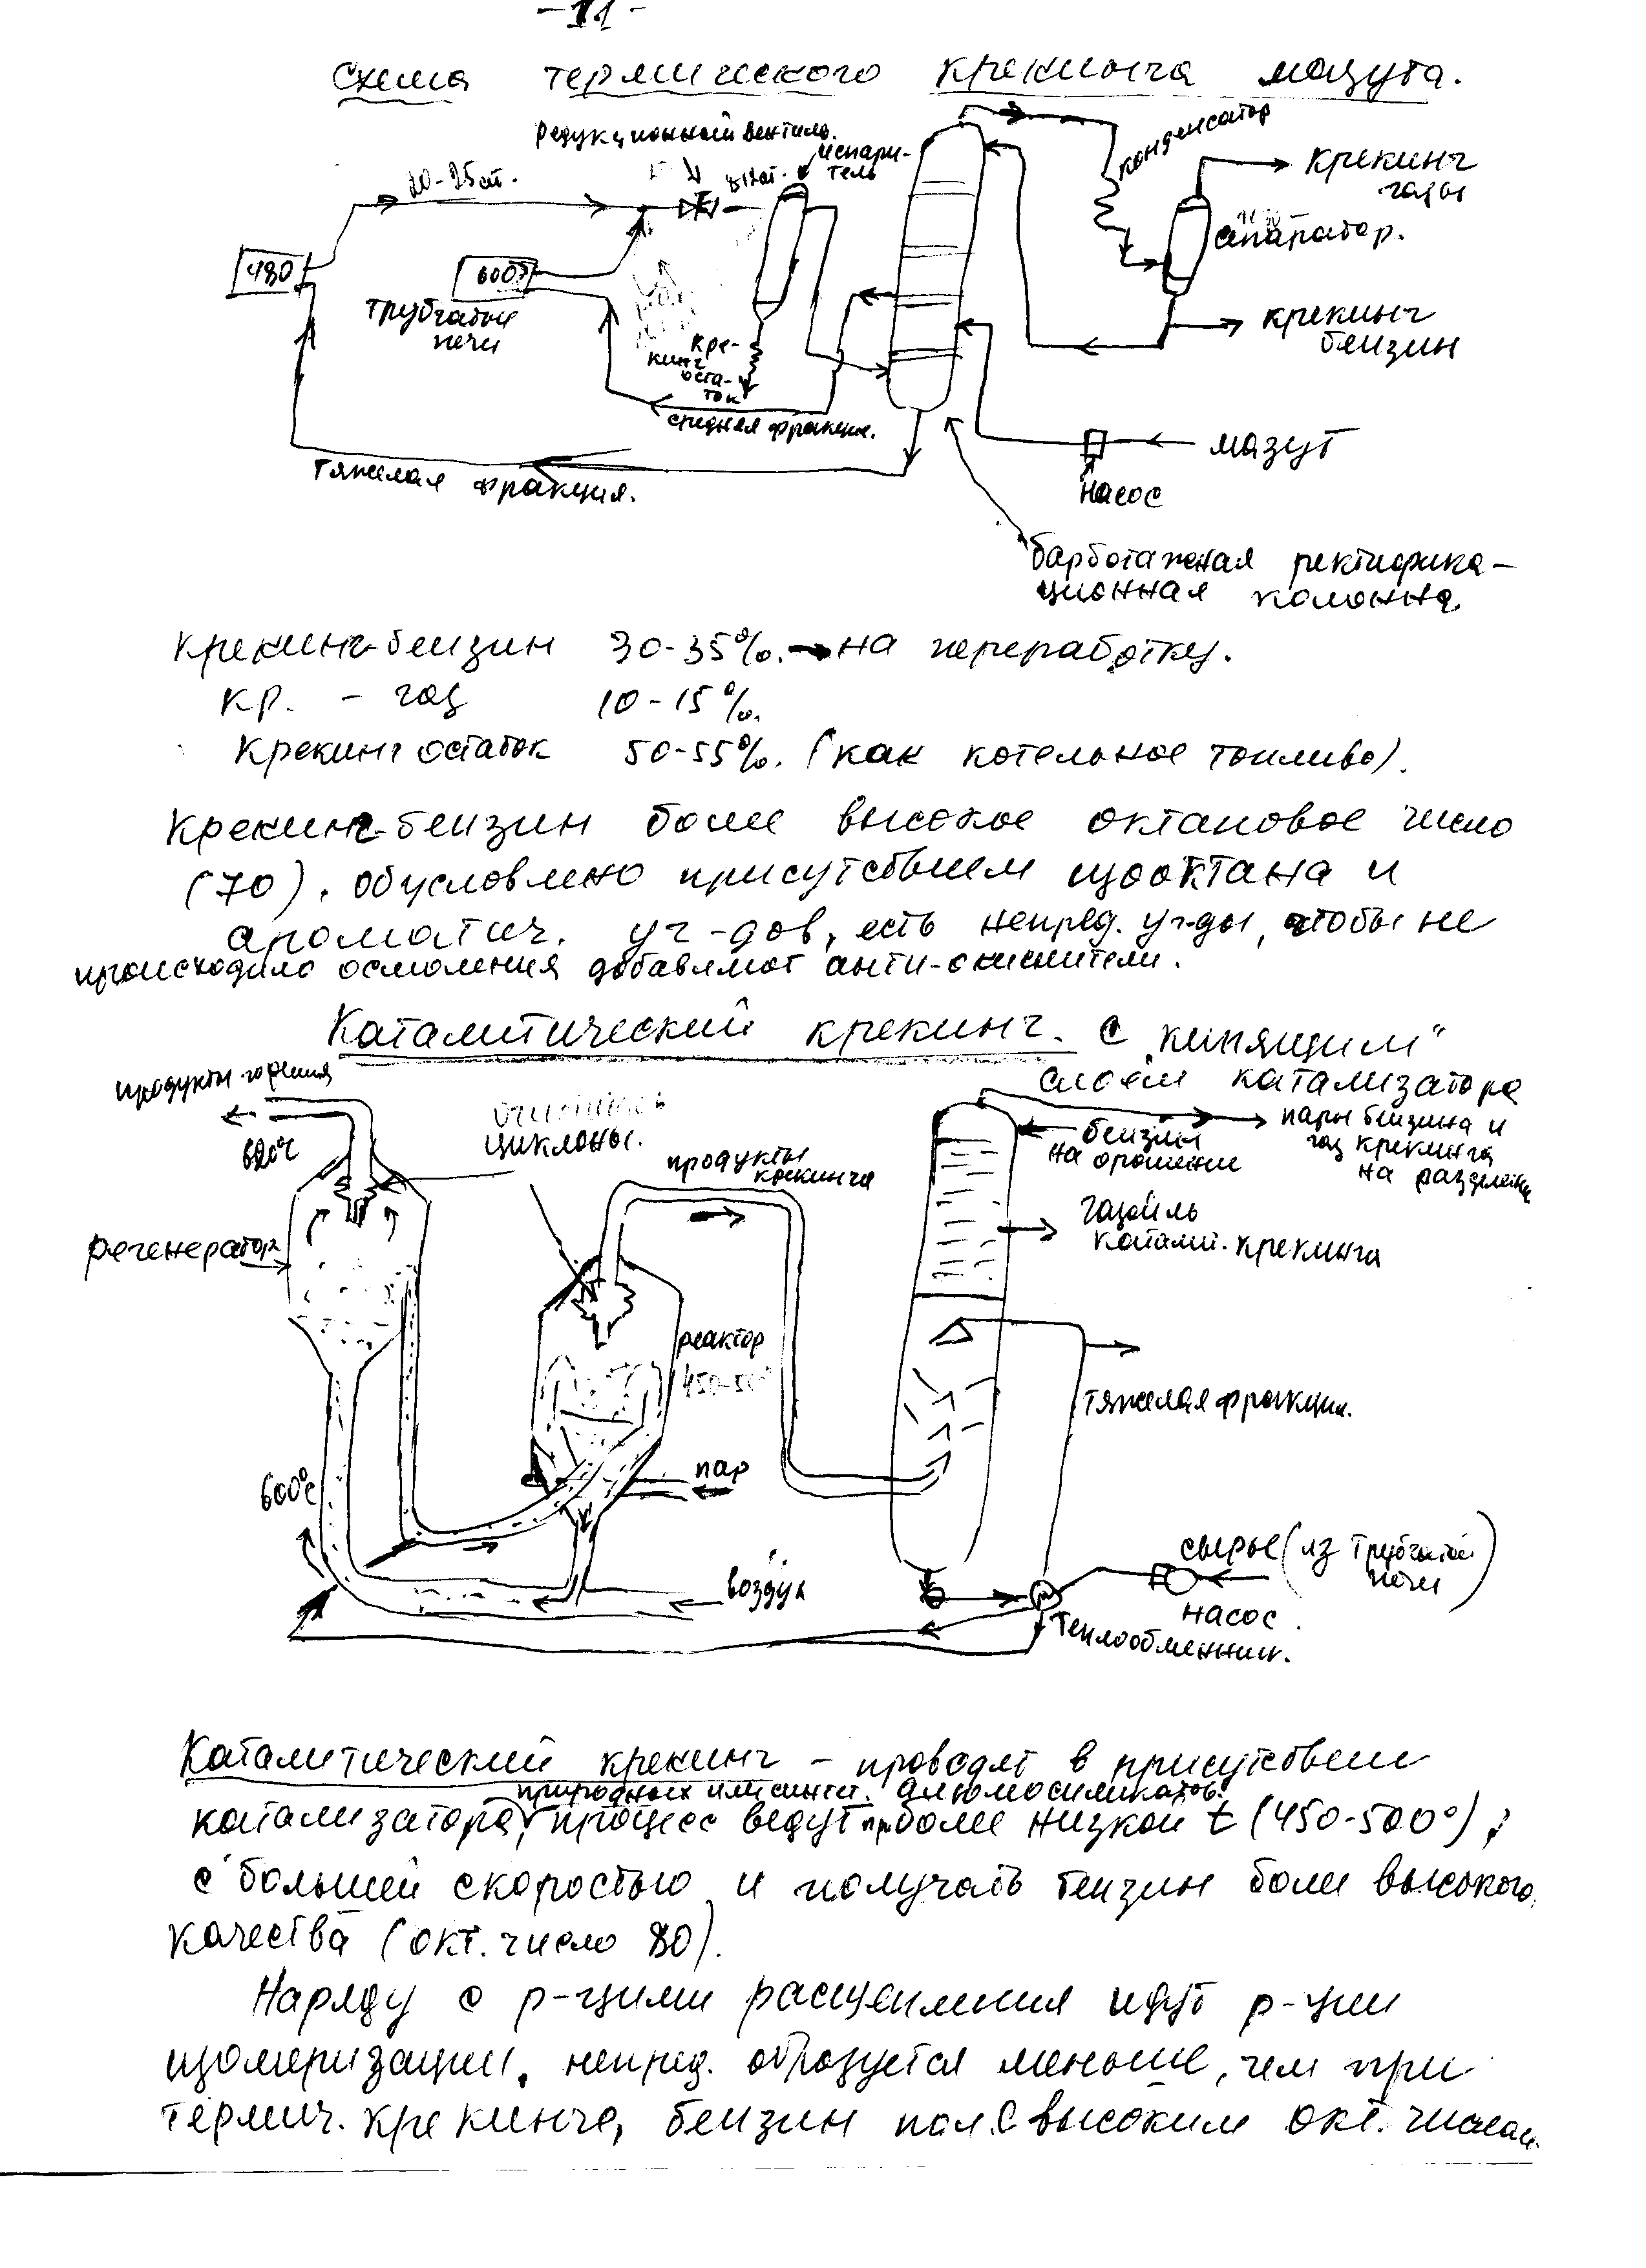 - 11 -
Схема термического крекинга мазута.
Редукционный вентиль.
испари-
тель
конденсатор
20-25ат.
крекинг
газы
480
600°
трубчатые
печи
крекинг
бензин
кре-
кинг
оста-
ток
средняя фракция.
тяжелая фракция.
мазут
насос
барботажная ректифика-
ционная колонна
Крекинг-бензин 30-35%. → на переработку.
кр. - газ 10-15%.
Крекинг остаток 50-55%. (как котельное топливо).
Крекинг-бензин более высокое октановое число
(70). обусловлено присутствием изооктана и
ароматич. уг-дов, есть непред. уг-ды, чтобы не
происходило осмоления добавляют анти-окислители.
Каталитический крекинг. с "кипящим"
слоем катализатора
продукты горения
620°С
циклоны.
продукты
крекинга
бензин
на орошение
пары бензина и
газ крекинга
на разделение
газойль
катали. крекинга
регенератор
реактор
450-500
тяжелая фракция.
600°С
пар
воздух
сырье (из трубчатой
печи)
насос
теплообменник.
Каталитический крекинг - проводят в присутствии
природных или синтет. алюмосиликатов.
катализатора, процесс ведут при более низкой t (450-500°),
с большей скоростью и получать бензин более высокого
качества (окт. число 80).
Наряду с р-циями расщепления идут р-ции
изомеризации, непред. образуется меньше, чем при
термич. крекинге, бензин пол. с высоким окт. числом